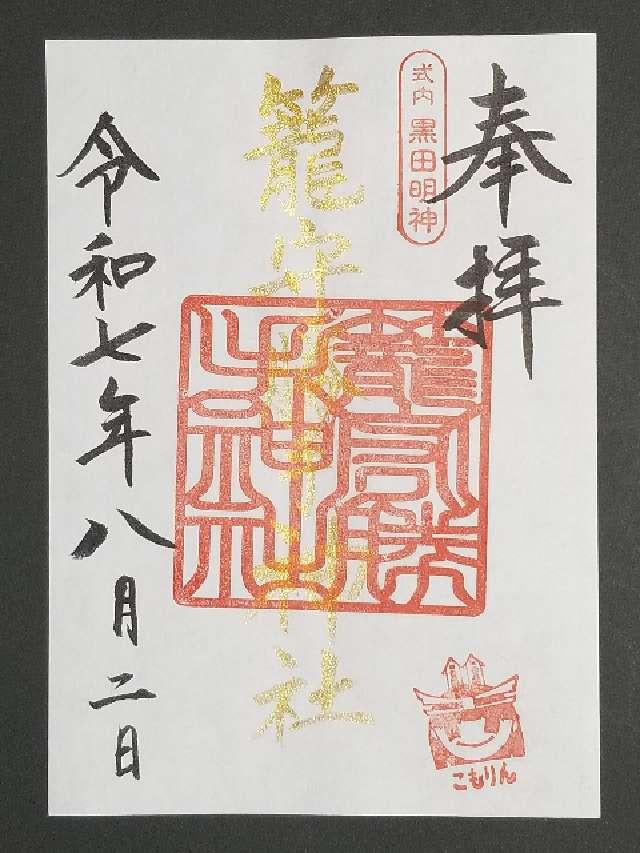 奉拝
式内 黒田明神
籠守勝手神社
籠守勝
手神社
こもりん
令和七年八月二日